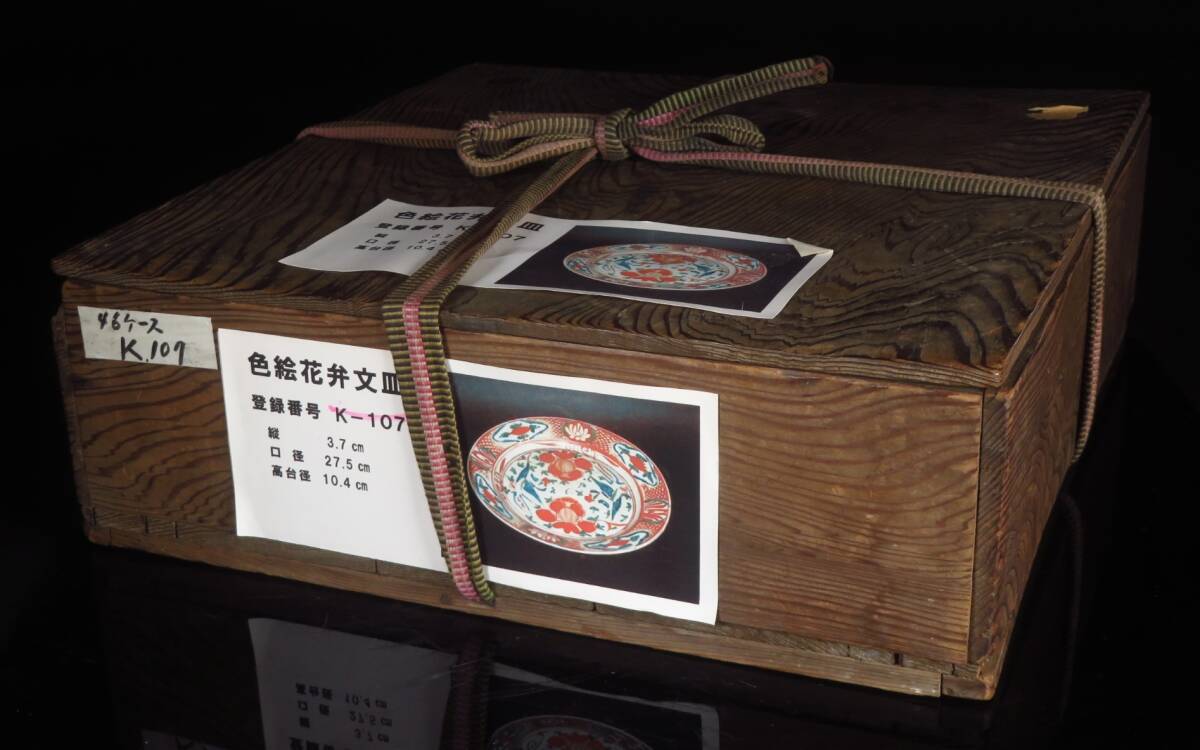 色絵花弁 皿
登録番号 K 07
縦 3.7
口径 27.5
高台径 10.4
46ケース
K.107
色絵花弁文皿
登録番号 K-107
縦 3.7 cm
口径 27.5 cm
高台径 10.4 cm